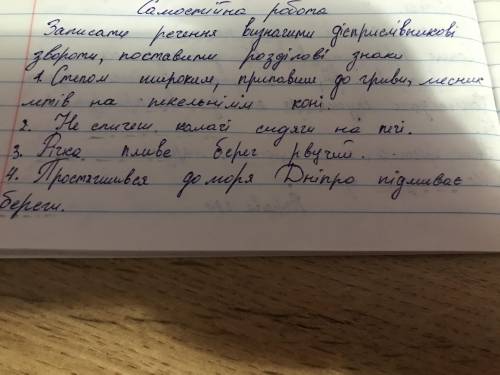 Самостійна робота
Записати речення визначити дієприслівникові
звороти, поставити розділові знаки
1. Степом широким, припавши до гриви, месник
летів на пекельнім коні.
2. Не спечеш калачі сидячи на печі.
3. Річка пливе берег рвучий.
4. Простягшився до моря Дніпро підмиває
береги.